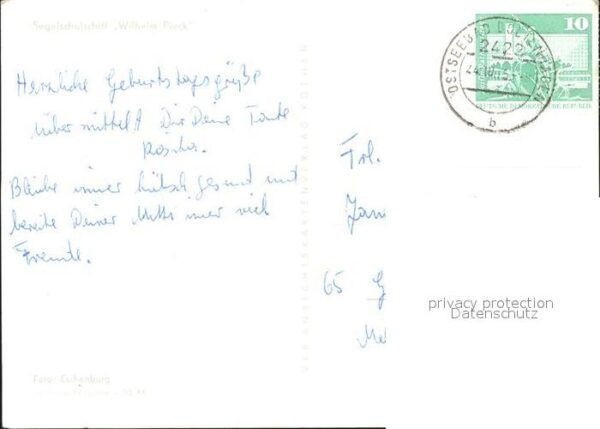 Segelschulschiff „Wilhelm Pieck"
Herzliche Geburtstagsgrüße
übermittelt Dir Deine Tante
Bleibe immer hübsch gesund und
bereite Deiner Mutti imer viel
Freude.
VEB ANSICHTSKARTENVERLAG KÖTHEN
Foto: Eschenburg
10
OSTSEEBAD
2422
b
DEUTSCHE DEMOKRATISCHE REPUBLIK
Frl.
65 G
privacy protection
Datenschutz